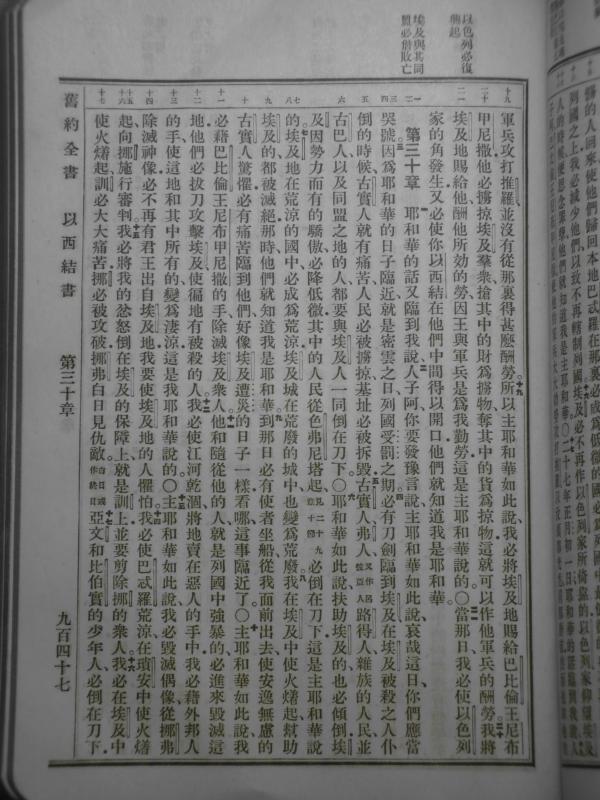 以色列必復興起
埃及與其同盟必偕敗亡
軍兵攻打推羅並沒有從那裏得甚麼酬勞所以主耶和華如此說我必將埃及地賜給巴比倫王尼布
甲尼撒他必擄掠埃及羣衆搶其中的財爲擄物奪其中的貨爲掠物這就可以作他軍兵的酬勞我將
埃及地賜給他酬他所效的勞因王與軍兵是爲我勤勞這是主耶和華說的〇當那日我必使以色列
家的角發生又必使你以西結在他們中間得以開口他們就知道我是耶和華
第三十章 耶和華的話又臨到我說人子阿你要發豫言說主耶和華如此說哀哉這日你們應當
哭號因爲耶和華的日子臨近就是密雲之日列國受罰之期必有刀劍臨到埃及在埃及被殺之人仆
倒的時候古實人就有痛苦人民必被擄掠基址必被拆毀古實人弗人又作呂彼亞人路得人雜族的人民並
古巴人以及同盟之地的人都要與埃及人一同倒在刀下〇耶和華如此說扶助埃及的也必傾倒埃
及因勢力而有的驕傲必降低微其中的人民從色弗尼塔起見二十九章十節必倒在刀下這是主耶和華說
的埃及地在荒涼的國中必成爲荒涼埃及城在荒廢的城中也變爲荒廢我在埃及中使火燒起幫助
埃及的都被滅絕那時他們就知道我是耶和華到那日必有使者坐船從我面前出去使安逸無慮的
古實人驚懼必有痛苦臨到他們好像埃及遭災的日子一樣看哪這事臨近了〇主耶和華如此說我
必藉巴比倫王尼布甲尼撒的手除滅埃及衆人他和隨從他的人就是列國中強暴的必進來毀滅這
地他們必拔刀攻擊埃及使徧地有被殺的人我必使江河乾涸將地賣在惡人的手中我必藉外邦人
的手使這地和其中所有的變爲淒涼這是我耶和華說的〇主耶和華如此說我必毀滅偶像從挪弗
除滅神像必不再有君王出自埃及地我要使埃及地的人懼怕我必使巴忒羅荒涼在瑣安中使火燔
起向挪施行審判我必將我的忿怒倒在埃及的保障上就是訓上並要剪除挪的衆人我必在埃及中
使火燔起訓必大大痛苦挪必被攻破挪弗白日見仇敵白日或作終日亞文和比伯實的少年人必倒在刀下
舊約全書 以西結書 第三十章 九百四十七